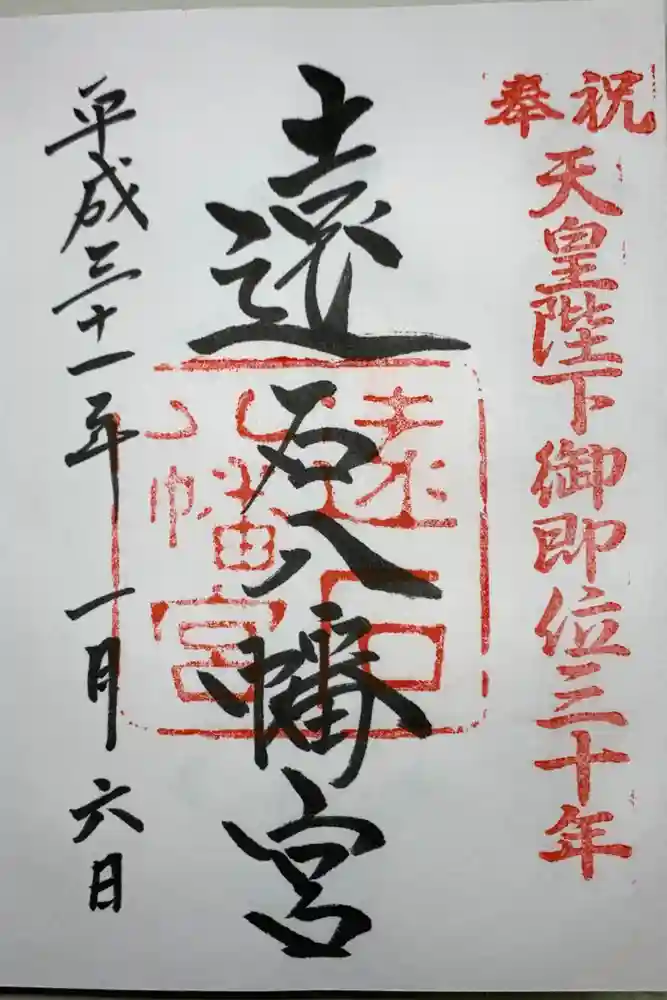 奉祝
天皇陛下御即位三十年
遠石八幡宮
遠石
八幡宮
平成三十一年 一月 六日